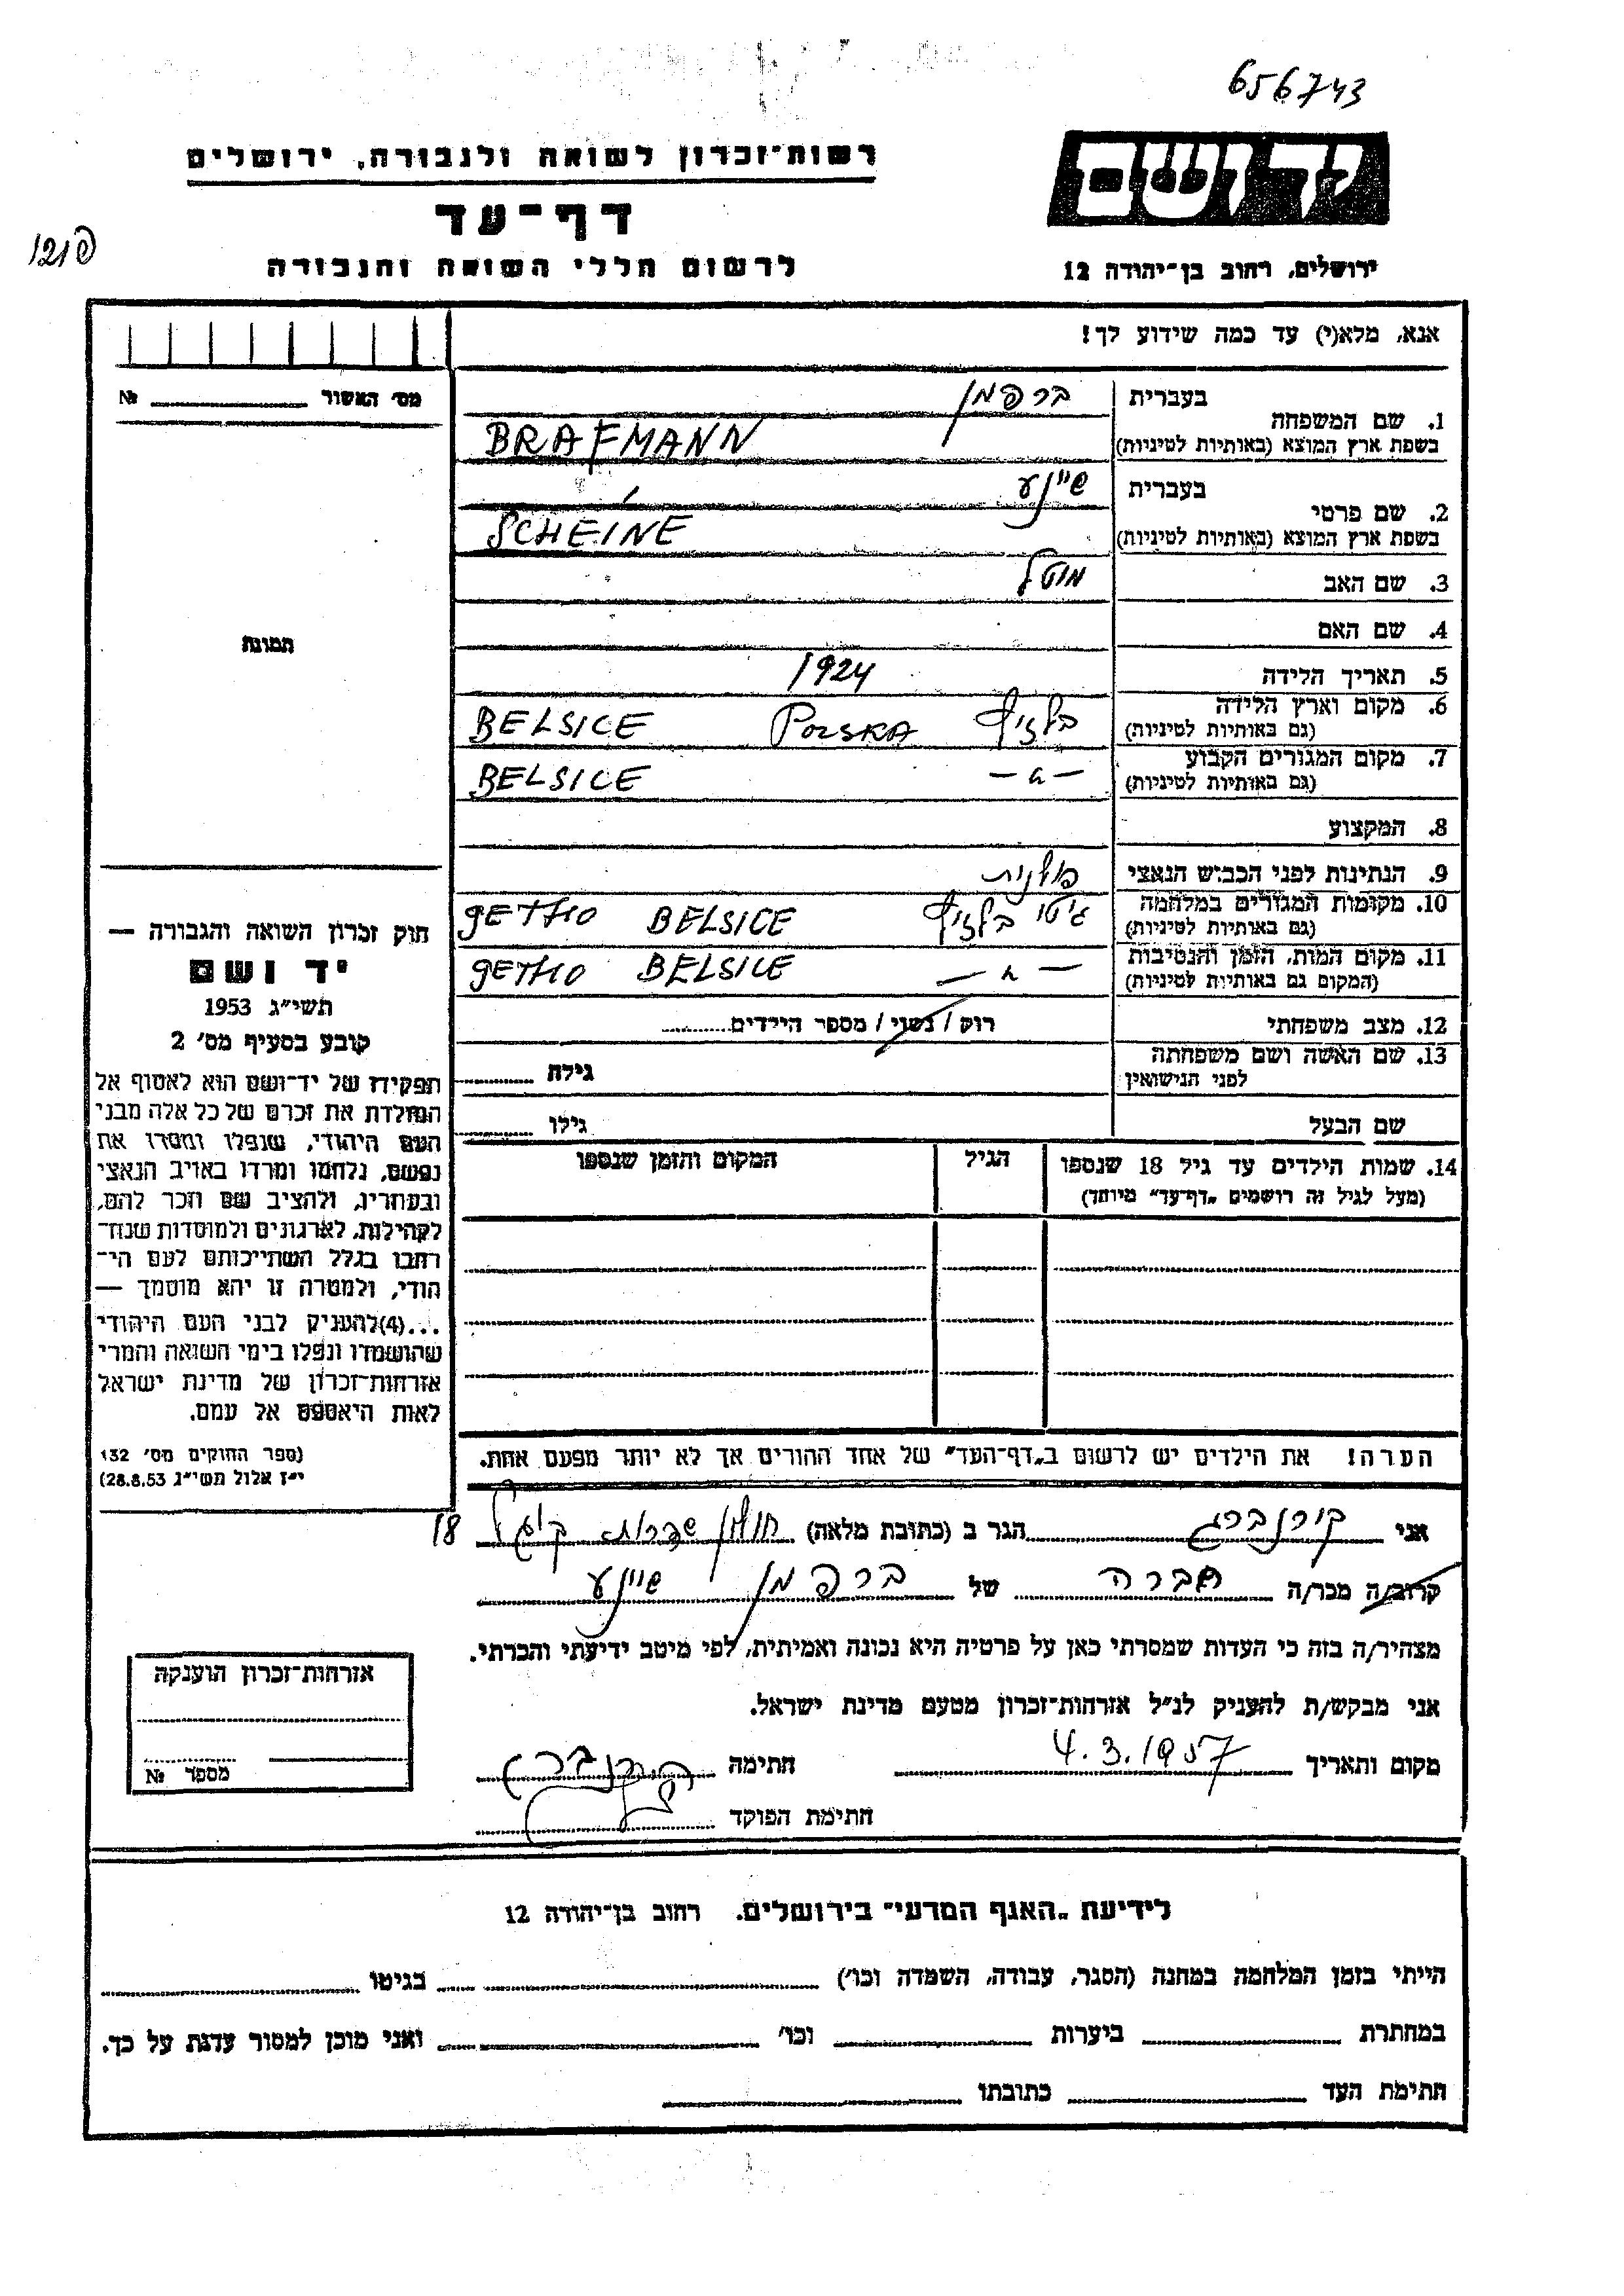 656743
יד ושם
רשות-זכרון לשואה ולגבורה, ירושלים
דף-עד
ירושלים, רחוב בן-יהודה 12
לרשום חללי השואה והגבורה
אנא, מלא(י) עד כמה שידוע לך!
מס׳ האשור № 
1. שם המשפחה
בעברית ברפמן
בשפת ארץ המוצא (באותיות לטיניות) BRAFMANN
2. שם פרטי
בעברית שיינע
בשפת ארץ המוצא (באותיות לטיניות) SCHEINE
3. שם האב מוטל
4. שם האם
תמונה
5. תאריך הלידה 1924
6. מקום וארץ הלידה (גם באותיות לטיניות) POLSKA BELSICE
7. מקום המגורים הקבוע (גם באותיות לטיניות) BELSICE
8. המקצוע
9. הנתינות לפני הכבוש הנאצי פולנית
10. מקומות המגורים במלחמה (גם באותיות לטיניות) גיטו GETHO BELSICE
11. מקום המות, הזמן והנסיבות (המקום גם באותיות לטיניות) GETHO BELSICE
12. מצב משפחתי רוק / נשוי / מספר הילדים
13. שם האשה ושם משפחתה לפני הנישואין גילה
שם הבעל גילו
14. שמות הילדים עד גיל 18 שנספו הגיל המקום והזמן שנספו
(מעל לגיל זה רושמים „דף-עד" מיוחד)
הערה! את הילדים יש לרשום ב„דף-העד" של אחד ההורים אך לא יותר מפעם אחת.
חוק זכרון השואה והגבורה —
יד ושם
תשי״ג 1953
קובע בסעיף מס׳ 2
תפקידו של יד-ושם הוא לאסוף אל
המולדת את זכרם של כל אלה מבני
העם היהודי, שנפלו ומסרו את
נפשם, נלחמו ומרדו באויב הנאצי
ובעוזריו, ולהציב שם וזכר להם,
לקהילות, לארגונים ולמוסדות שנח-
רבו בגלל השתייכותם לעם הי-
הודי, ולמטרה זו יהא מוסמך —
...(4)להעניק לבני העם היהודי
שהושמדו ונפלו בימי השואה והמרי
אזרחות-זכרון של מדינת ישראל
לאות היאספם אל עמם.
(ספר החוקים מס׳ 132
י״ז אלול תשי״ג 28.8.53)
אני קורנברג הגר ב (כתובת מלאה) חולון שדרות קוגל 18
קרוב/ה מכר/ה חברה של ברפמן שיינע
מצהיר/ה בזה כי העדות שמסרתי כאן על פרטיה היא נכונה ואמיתית, לפי מיטב ידיעתי והכרתי.
אני מבקש/ת להעניק לנ״ל אזרחות-זכרון מטעם מדינת ישראל.
מקום ותאריך 4.3.1957 חתימה
חתימת הפוקד
אזרחות-זכרון הוענקה
מספר №
לידיעת „האגף המדעי" בירושלים, רחוב בן-יהודה 12
הייתי בזמן המלחמה במחנה (הסגר, עבודה, השמדה וכו׳) בגיטו
במחתרת ביערות וכו׳ ואני מוכן למסור עדות על כך.
חתימת העד כתובתו